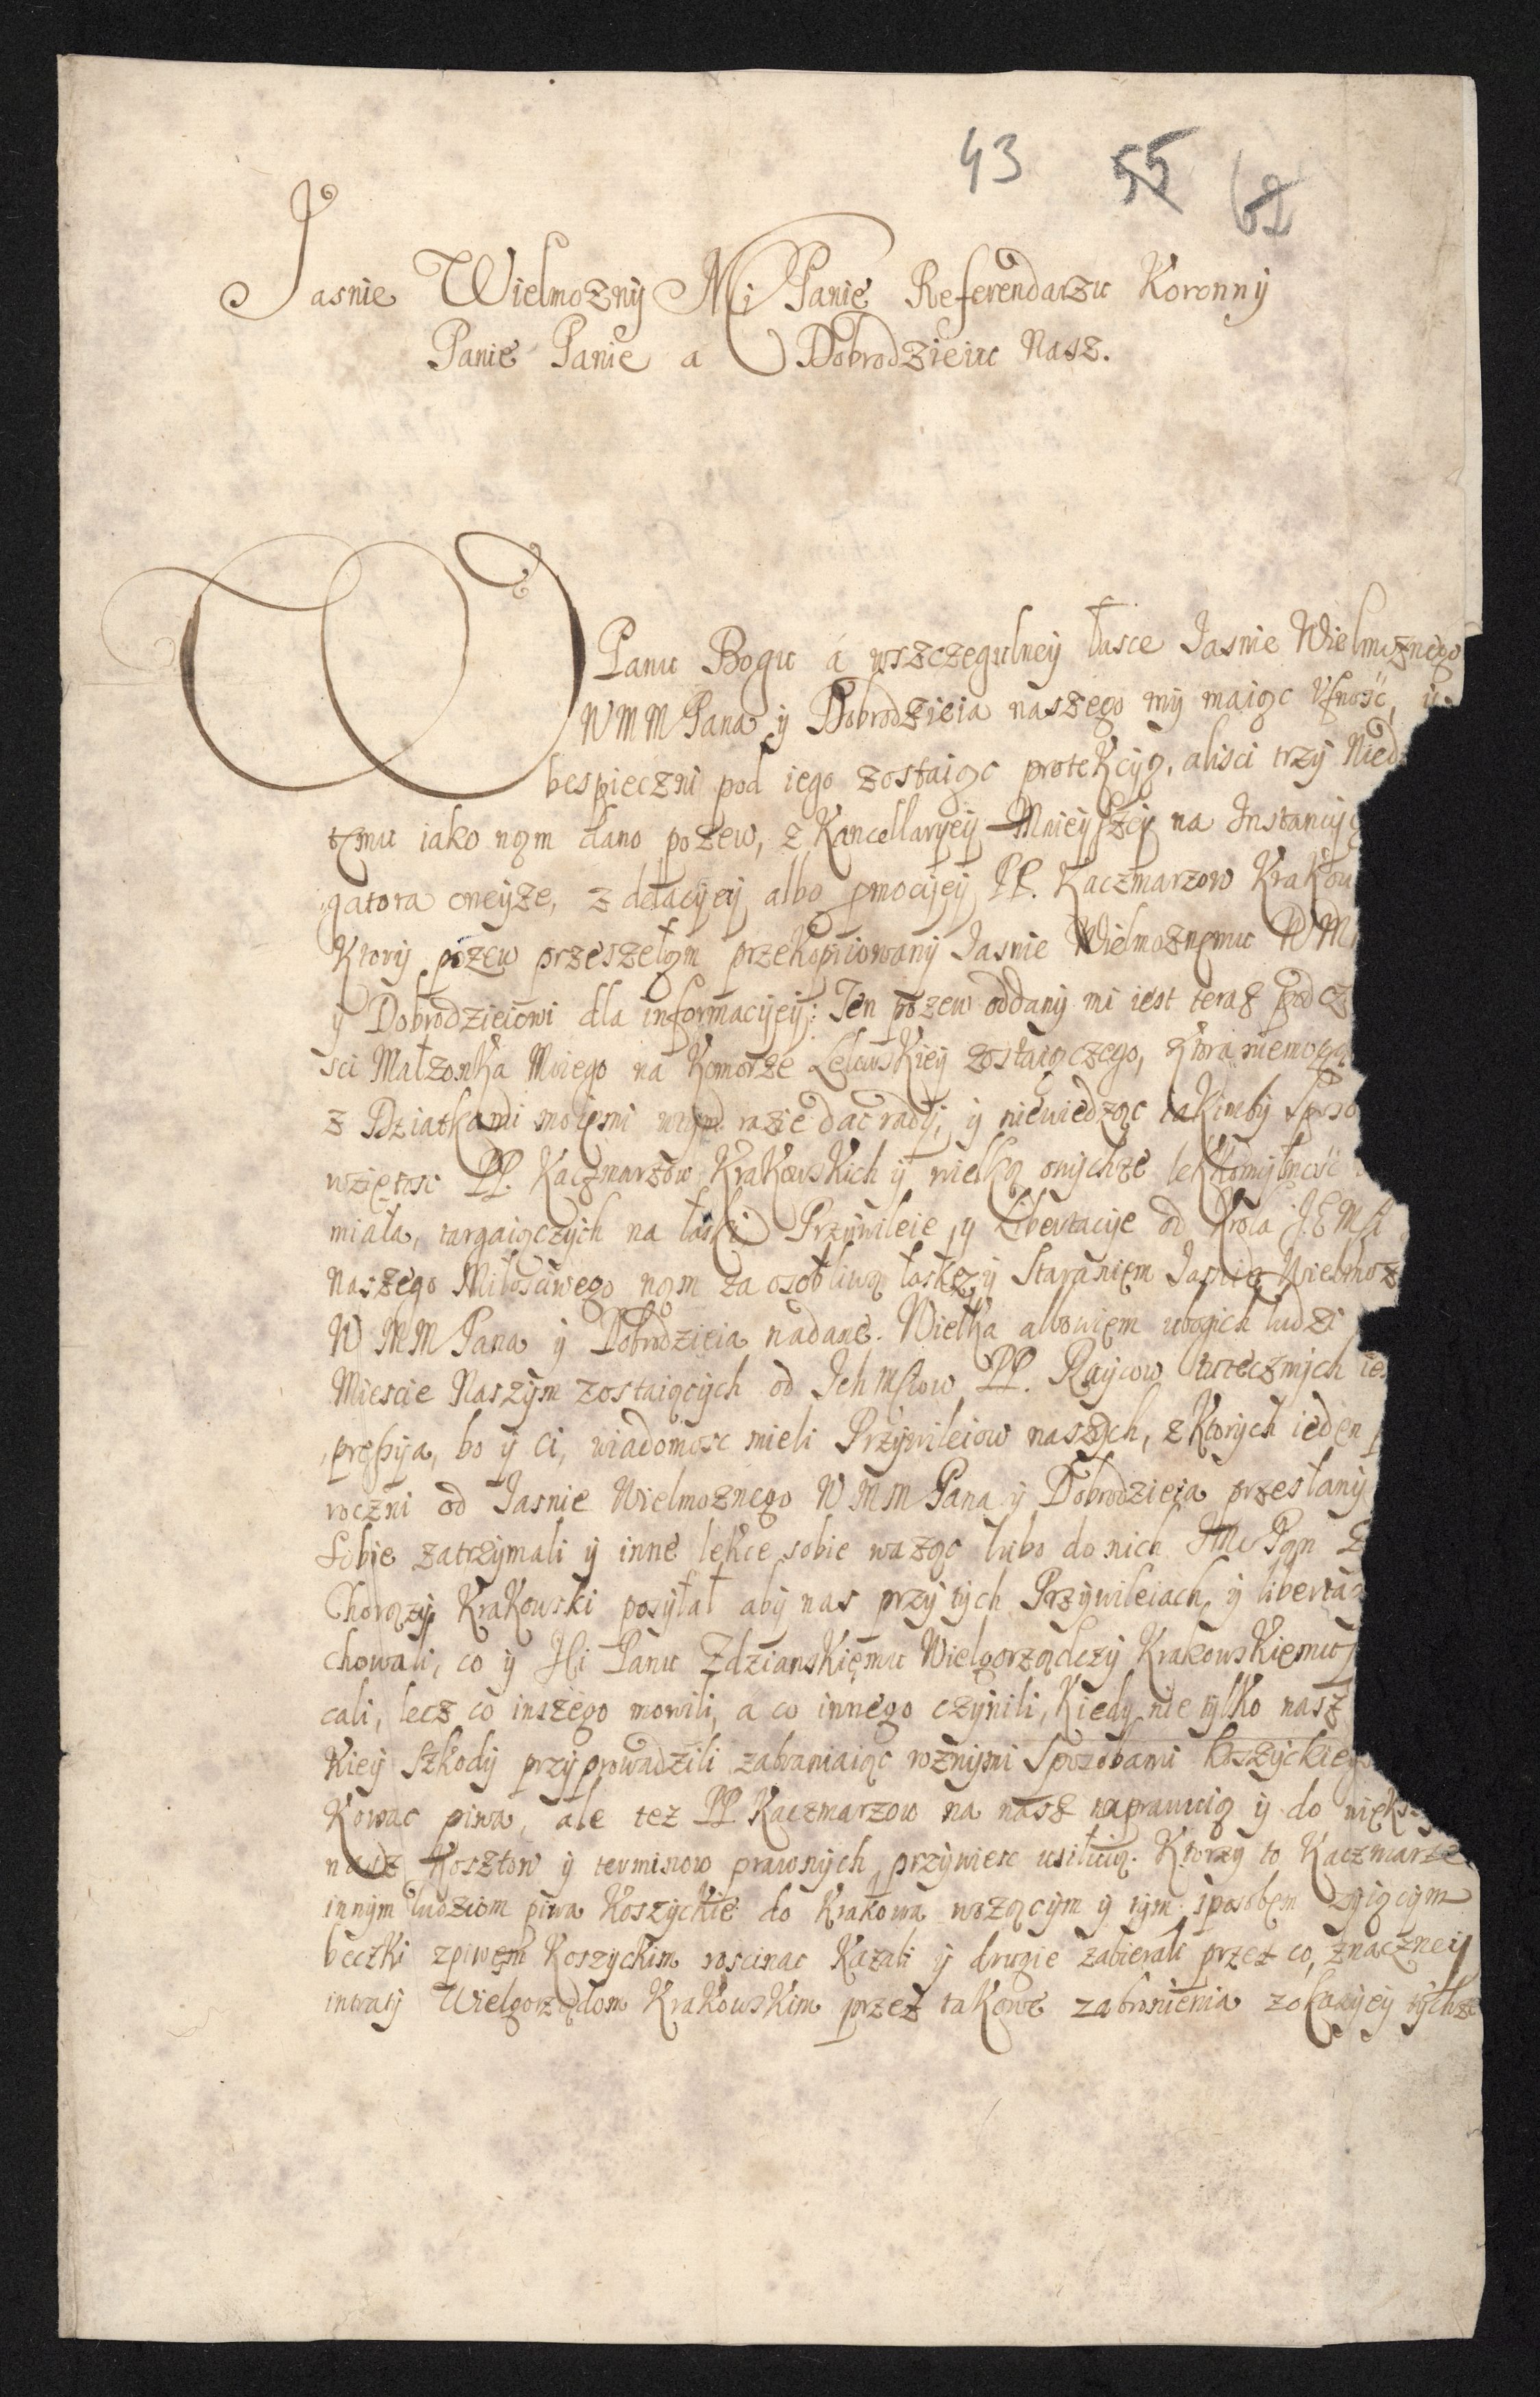 43 55 62
Jasnie Wielmozny Mi Panie Referendarzu Koronny
Panie Panie a Dobrodzieiu Nasz.
W Panu Bogu á wszczegulney łasce Jasnie Wielmoznego
W M M Pana ÿ Dobrodzieia naszego mÿ maiąc Vfność, ÿ
bespieczni pod iego zostaiąc protekcyą, alisci trzÿ Nied
temu iako nąm dano pozew, z Kancellaryeÿ Mnieÿszeÿ na Instancyą
gatora oneÿze, z delacÿeÿ albo pmocÿeÿ PP. Kaczmarzow Krakow
Ktorÿ pozew przeszełąm przekopiowanÿ Jasnie Wielmoznemu W M
ÿ Dobrodzieiowi dla informacÿeÿ: Ten pozew oddanÿ mi iest teraz pod cz
sci Małzonka Moiego na Komorze Lelowskieÿ zostaiączego, Ktora niemogą
z Dziatkami moiemi wtym razie dac radÿ, ÿ niewiedząc iakimbÿ sposo
wziętosc PP. Kaczmarzow Krakowskich ÿ wielką onÿchze lekkomÿslnosć
miała, targaiączÿch na łaski Przÿwileie ÿ Libertacÿe od Krola J E M
Naszego Miłosciwego nąm za osobliwą łaską ÿ Staraniem Jasnie Wielmoz
W M M Pana ÿ Dobrodzieia nadane. Wielka albowiem ubogich ludzi
Miescie Naszÿm zostaiącÿch od Ich Mſciow PP. Raÿcow tutecznÿch ies
preſsÿa, bo ÿ Ci, wiadomosc mieli Przÿwileiow naszÿch, z Ktorÿch ieden
roczni od Jasnie Wielmoznego W M M Pana ÿ Dobrodzieia przesłanÿ
Sobie zatrzÿmali ÿ inne lekce sobie waząc lubo do nich JMc Pąn
Chorązÿ Krakowski posÿłał abÿ nas przÿ tÿch Przÿwileiach ÿ liberta
chowali, co ÿ Jſci Panu Zdzianskiemu Wielgorządczÿ Krakowskiemu
cali, lecz co inszego mowili, á co innego czÿnili, Kiedÿ nie tÿlko nasz
Kieÿ Szkodÿ przÿprowadzili zabraniaiąc roznÿmi Sposobami koszÿckiego
Kowac piwa, ale tez PP Kaczmarzow na nasz naprawuią ÿ do większ
nasz Kosztow ÿ terminow prawnÿch przÿwiesc usiłuią. Ktorzÿ to Kaczmarze
innÿm ludziom piwa Koszÿckie do Krakowa wozącÿm ÿ tÿm sposobem zÿiącÿm
beczki zpiwem Koszÿckim roscinac Kazali ÿ drugie zabierali przez co, znaczneÿ
intratÿ Wielgorządom Krakowskim przez takowe zabronienia zokazÿeÿ tÿchze